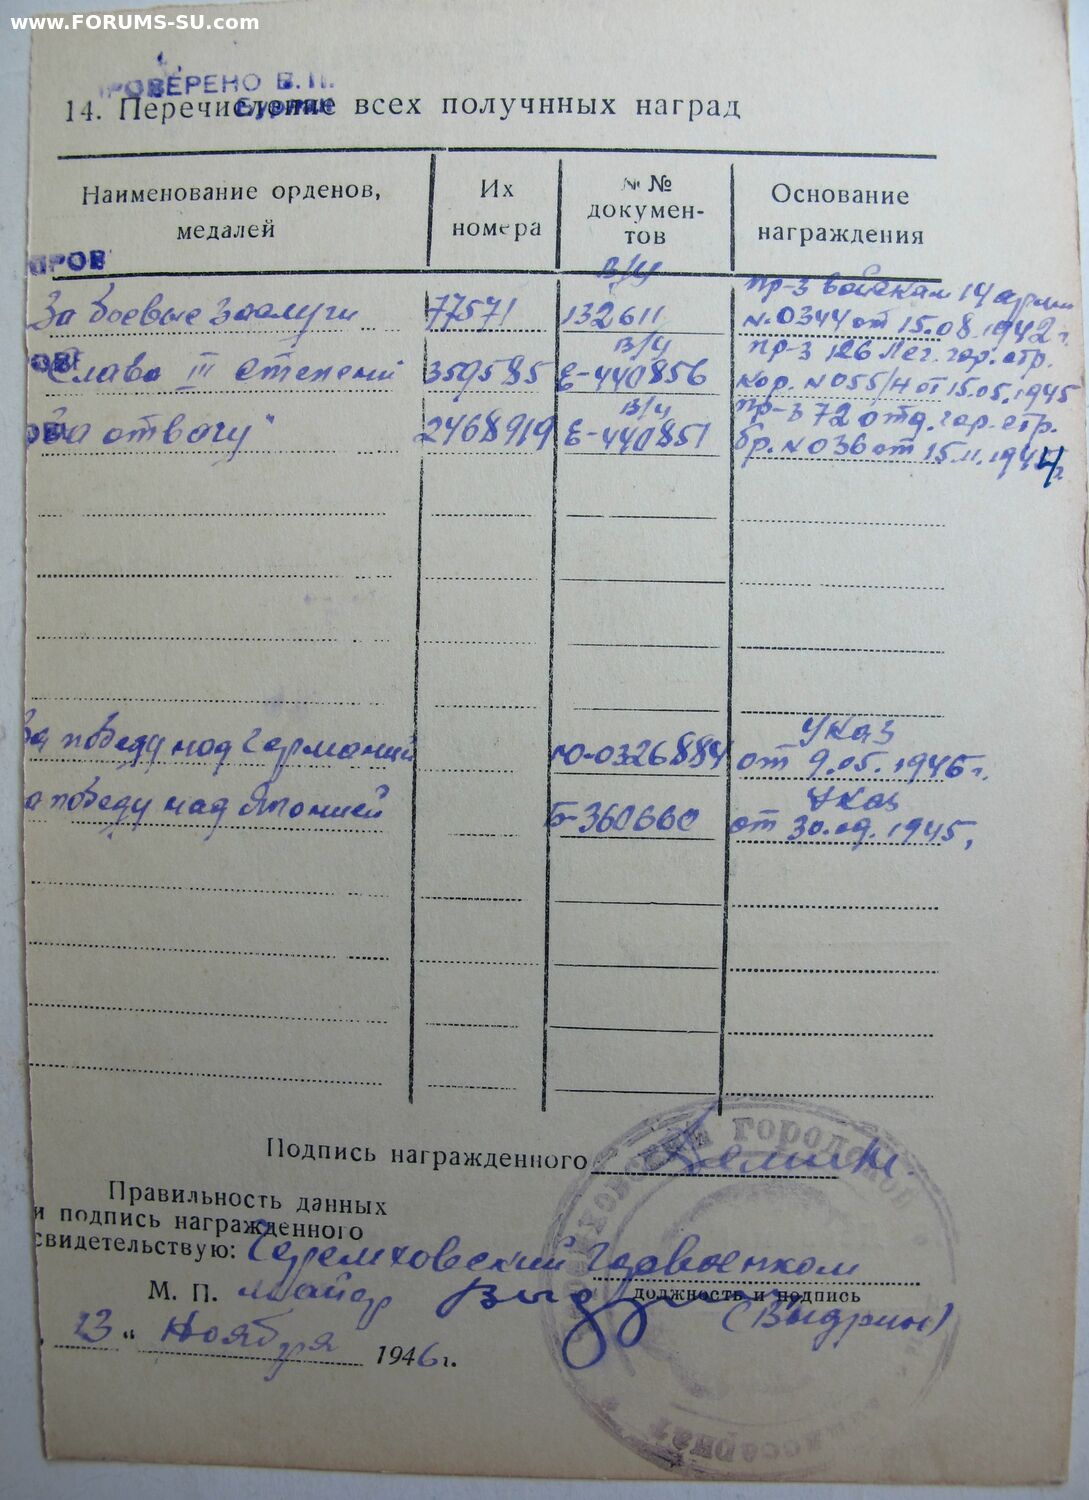 www.FORUMS-SU.com
ПРОВЕРЕНО В.П.
14. Перечисление всех получнных наград
Наименование орденов, медалей
Их номера
№ № докумен-
тов
Основание
награждения
ПРОВ
За боевые заслуги 77571 в/у 132611 пр-з войскам 14 армии
№ 0344 от 15.08.1942 г.
Слава III степени 359585 в/у Е-440856 пр-з 126 лег. гор. стр.
кор. № 055/н от 15.05.1945
За отвагу" 2468919 в/у Е-440851 пр-з 72 отд. гор. стр.
бр. № 036 от 15.11.1944 г.
За победу над Германией Ю-0326884 Указ
от 9.05.1945 г.
а победу над Японией Б-360660 Указ
от 30.09.1945,
Подпись награжденного
Правильность данных
и подпись награжденного
свидетельствую: Черемховский Горвоенком
должность и подпись
М. П. майор (Выдрин)
13 " Ноября 1946 г.
городской